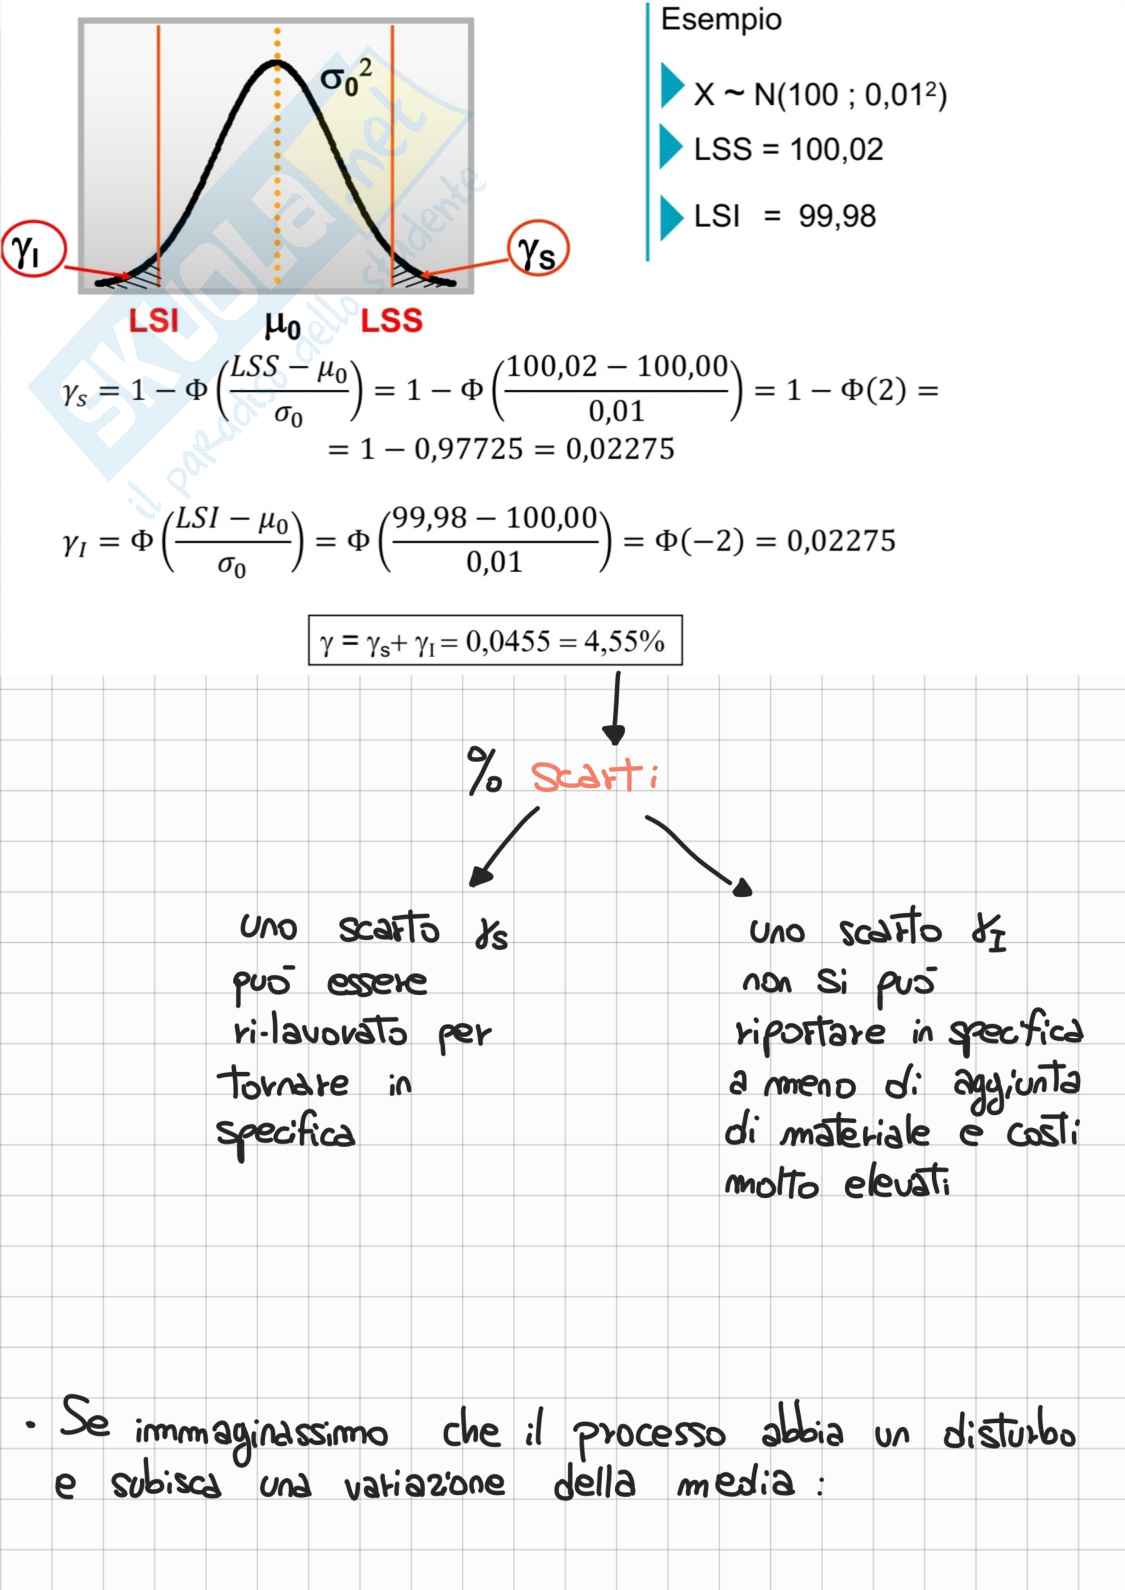 σ₀²
γI
γS
LSI
μ₀
LSS
Esempio
X ~ N(100 ; 0,01²)
LSS = 100,02
LSI = 99,98
SKUOLA.net
il paradiso dello studente
γₛ = 1 − Φ((LSS − μ₀)/σ₀) = 1 − Φ((100,02 − 100,00)/0,01) = 1 − Φ(2) =
= 1 − 0,97725 = 0,02275
γI = Φ((LSI − μ₀)/σ₀) = Φ((99,98 − 100,00)/0,01) = Φ(−2) = 0,02275
γ = γS+ γI = 0,0455 = 4,55%
% scarti
uno scarto γS
può essere
ri-lavorato per
tornare in
specifica
uno scarto γI
non si può
riportare in specifica
a meno di aggiunta
di materiale e costi
molto elevati
· Se immaginassimo che il processo abbia un disturbo
e subisca una variazione della media :